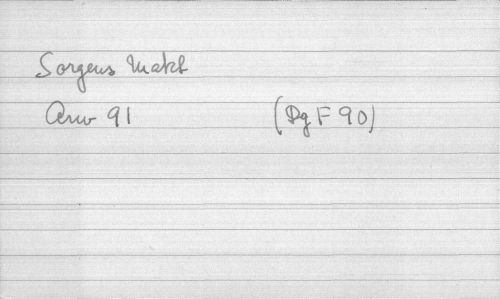 Sorgens Makt
Arw 91 (Dg F 90)